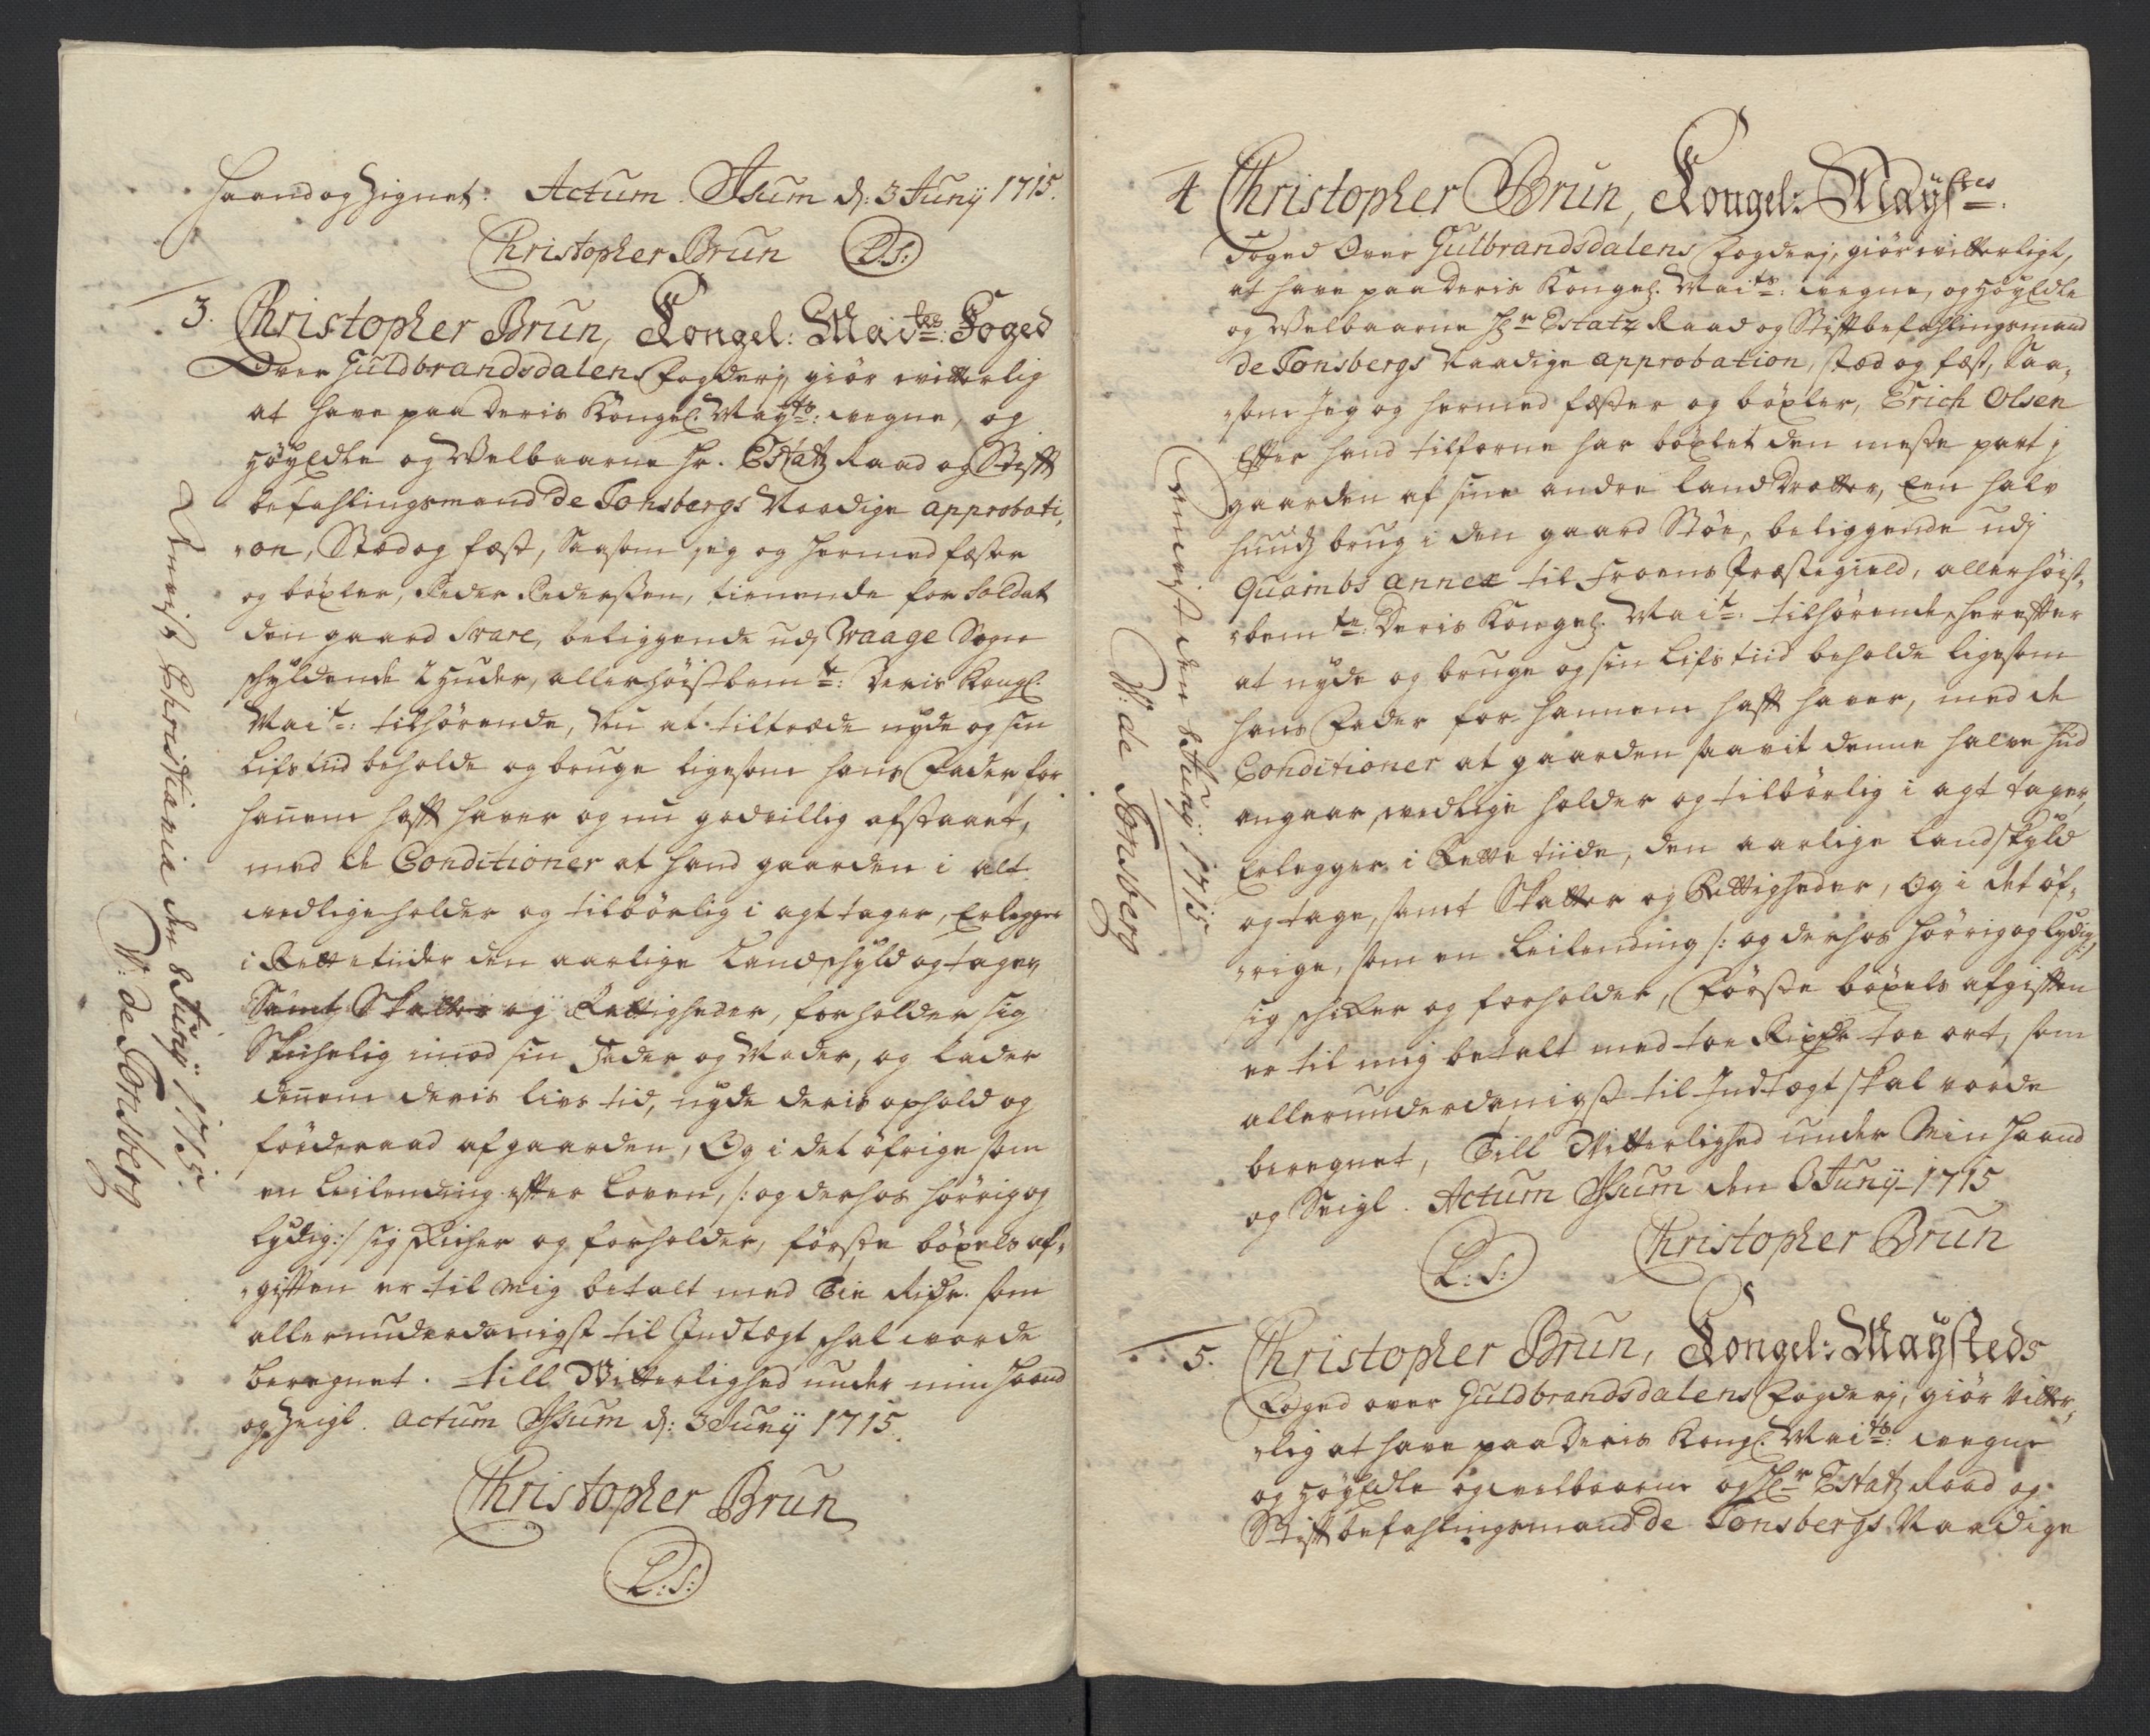 Haand og Zignet: Actum Isum d: 3 Junij 1715.
Christopher Brun L:S:
3. Christopher Brun, Kongel: Maitts: Foged
Over Guldbrandsdalens Fogderj, giör witterlig
at have paa Deris Kongel: Maytts: weegne, og
Höyædle og Welbaarne Hr. Estatz Raad og Stifft
befahlingsmand de Tonsbergs Naadige approbati,
„on, Stæd og fæst, Saasom jeg og hermed fæster
og böxler, Peder Pedersen, tienende for Soldat
den gaard Svare, beliggende udj Vaage Sogn
schyldende 2 Huder, allerhöistbemte: Deris Kongl.
Mait: tilhörende, Nu at tiltræde nyde og sin
Lifs tiid beholde og bruge ligesom hans Fader for
hannem hafft haver og nu godvillig afstaaet,
med de Conditioner at hand gaarden i alt
wedligeholder og tilbörlig i agt tager, Erlegger
i Rette tiider den aarlige Landschyld og tager,
Samt Skatter og Rettigheder, forholder sig
Skichelig imod sin Fader og Moder, og lader
dennem deris livs tid, nyde deris ophold og
föederaad af gaarden, Og i det öfrige som
en Leilending efter Loven, /: og derhos hörrig og
Lydig :/ sig skicher og forholder, förste böxels af„
„gifften er til mig betalt med Tie Rixdr. som
allerunderdanigst til Indtægt schal worde
beregnet. till Witterlighed under min Haand
og Zeigl. Actum Isum d: 3 Junij 1715.
Christopher Brun
L:S:
Anvist Christiania den 8 Junij 1715.
W: de Tonsberg
4 Christopher Brun, Kongel: Mayttes.
Foged Over Gulbrandsdalens Fogderj, giör witterligt,
at have paa Deris Kongel. Maitts: weegne, og Höyædle
og Welbaarne Hr Estatz Raad og Stiftbefahlingsmand
de Tonsbergs Naadige approbation, stæd og fæst, Saa„
„som jeg og hermed fæster og böxler, Erich Olsen
Efter hand tilforne har böxlet den meste part j
gaarden af sine andre Land Drotter, Een halv
Huudz brug i den gaard Stöe, beliggende udj
Quambs annex til Froens Præstegield, allerhöist„
„bemte: Deris Kongel. Mait: tilhörende, herefter
at nyde og bruge og sin Lifs tiid beholde ligesom
hans Fader for hannem hafft haver, med de
Conditioner at gaarden saavit denne halve Hud
angaar, wedlige holder og tilbörlig i agt tager,
Erlegger i Rette tiide, den aarlige Landskyld
og tage, samt Skatter og Rettigheder, Og i det öf„
„rige, som en Leilending /: og derhos hörrig og lydig :/
sig schicker og forholder, Förste böxels afgifften
er til mig betalt med toe Rixdr toe ort, som
allerunderdanigst til Indtægt skal vorde
beregnet, Till Witterlighed under Min Haand
og Seigl. Actum Isum den 6 Junij 1715
L:S: Christopher Brun
Anvist den 8 Junij 1715
W: de Tonsberg
5. Christopher Brun, Kongel: Maysteds
Foged over Guldbrandsdalens Fogderj, giör Vitter„
„lig at have paa Deris Kongl. Maitts: weegne
og Höyædle og welbaarne og Hr Estatz Raad og
Stifftbefahlingsmand de Tonsbergs Naadige